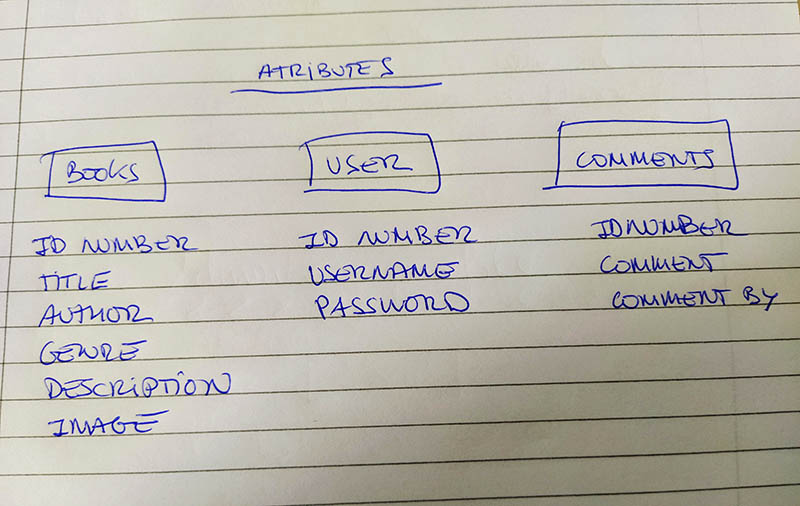 ATRIBUTES
BOOKS
ID NUMBER
TITLE
AUTHOR
GENRE
DESCRIPTION
IMAGE
USER
ID NUMBER
USERNAME
PASSWORD
COMMENTS
ID NUMBER
COMMENT
COMMENT BY